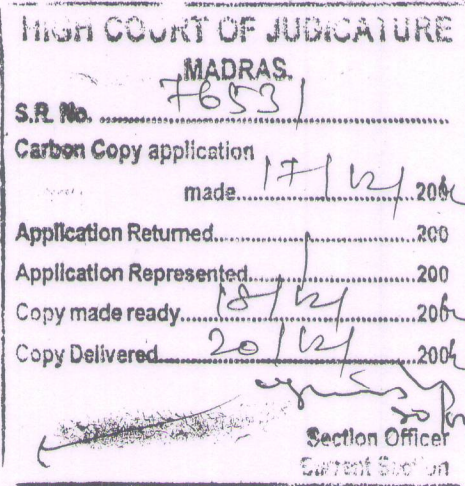 HIGH COURT OF JUDICATURE
MADRAS.
S.R. No. 76531
Carbon Copy application
made 17/12/ 200
Application Returned 200
Application Represented 200
Copy made ready 18/12/ 200
Copy Delivered 20/12/ 200
Section Officer
Current Section